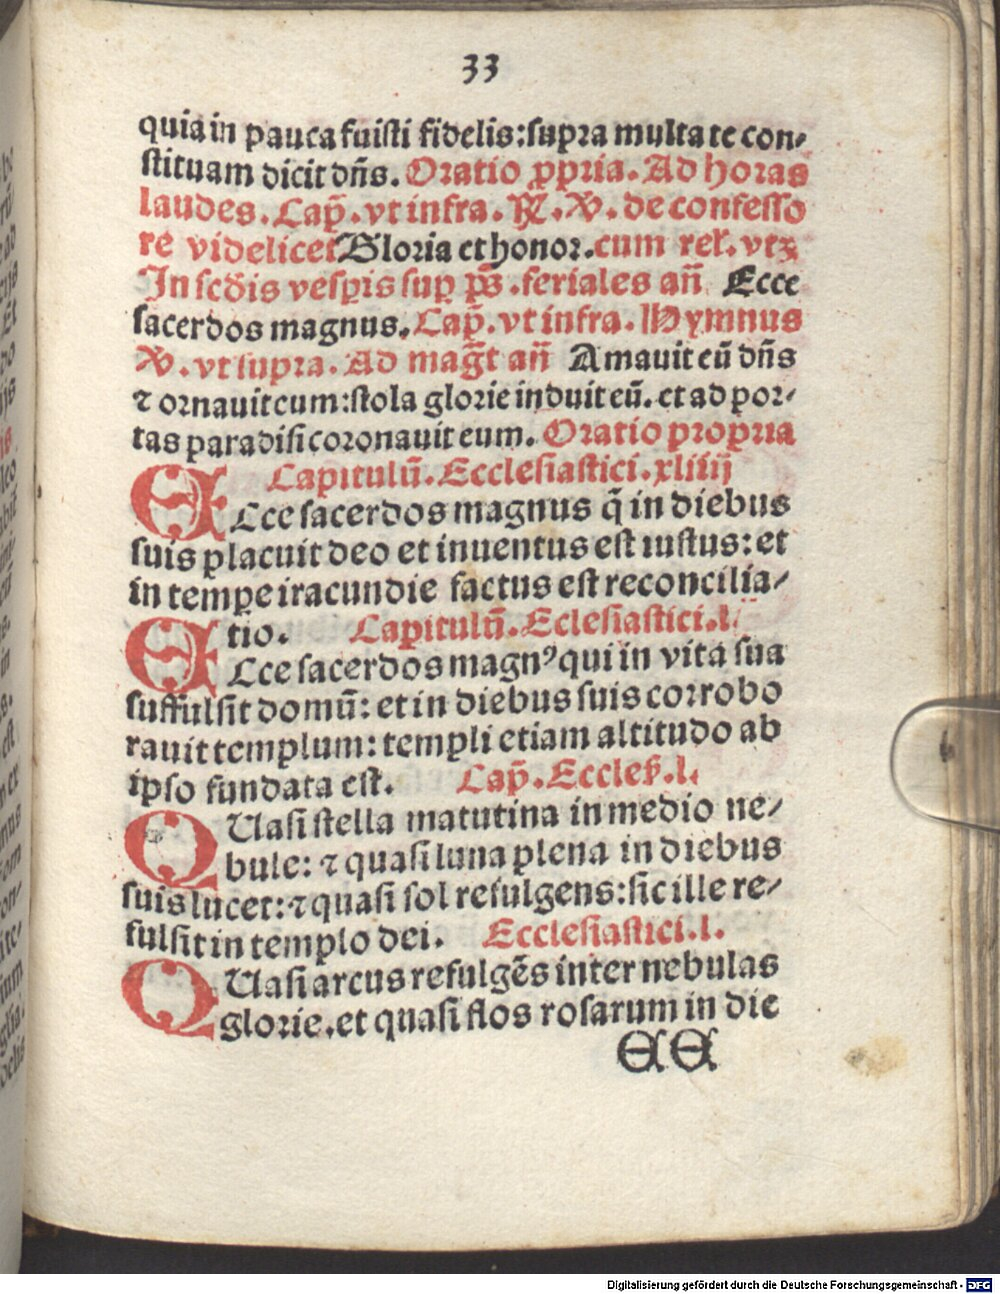 33
quia in pauca fuisti fidelis: supra multa te con⸗
stituam dicit dñs. Oratio ꝓpria. Ad horas
laudes. Cap̃. vt infra. ℟. ℣. de confesso
re videlicet Gloria et honor. cum rel̃. vtꝫ
In scðis vesꝑis suꝑ p̃s. feriales añ Ecce
sacerdos magnus. Cap̃. vt infra. Hymnus
℣. vt supra. Ad mag̃t añ Amauit eũ dñs
⁊ ornauit eum: stola glorie induit eũ. et ad por⸗
tas paradisi coronauit eum. Oratio propria
Capitulũ. Ecclesiastici. xliiij
ECce sacerdos magnus q̃ in diebus
suis placuit deo et inuentus est iustus: et
in tempe iracundie factus est reconcilia⸗
tio. Capitulũ. Eclesiastici. l.
ECce sacerdos magnꝰ qui in vita sua
suffulsit domũ: et in diebus suis corrobo
rauit templum: templi etiam altitudo ab
ipso fundata est. Cap̃. Eccles̃. l.
QUasi stella matutina in medio ne⸗
bule: ⁊ quasi luna plena in diebus
suis lucet: ⁊ quasi sol refulgens: sic ille re⸗
fulsit in templo dei. Ecclesiastici. l.
QUasi arcus refulgẽs inter nebulas
glorie. et quasi flos rosarum in die
EE
Digitalisierung gefördert durch die Deutsche Forschungsgemeinschaft - DFG